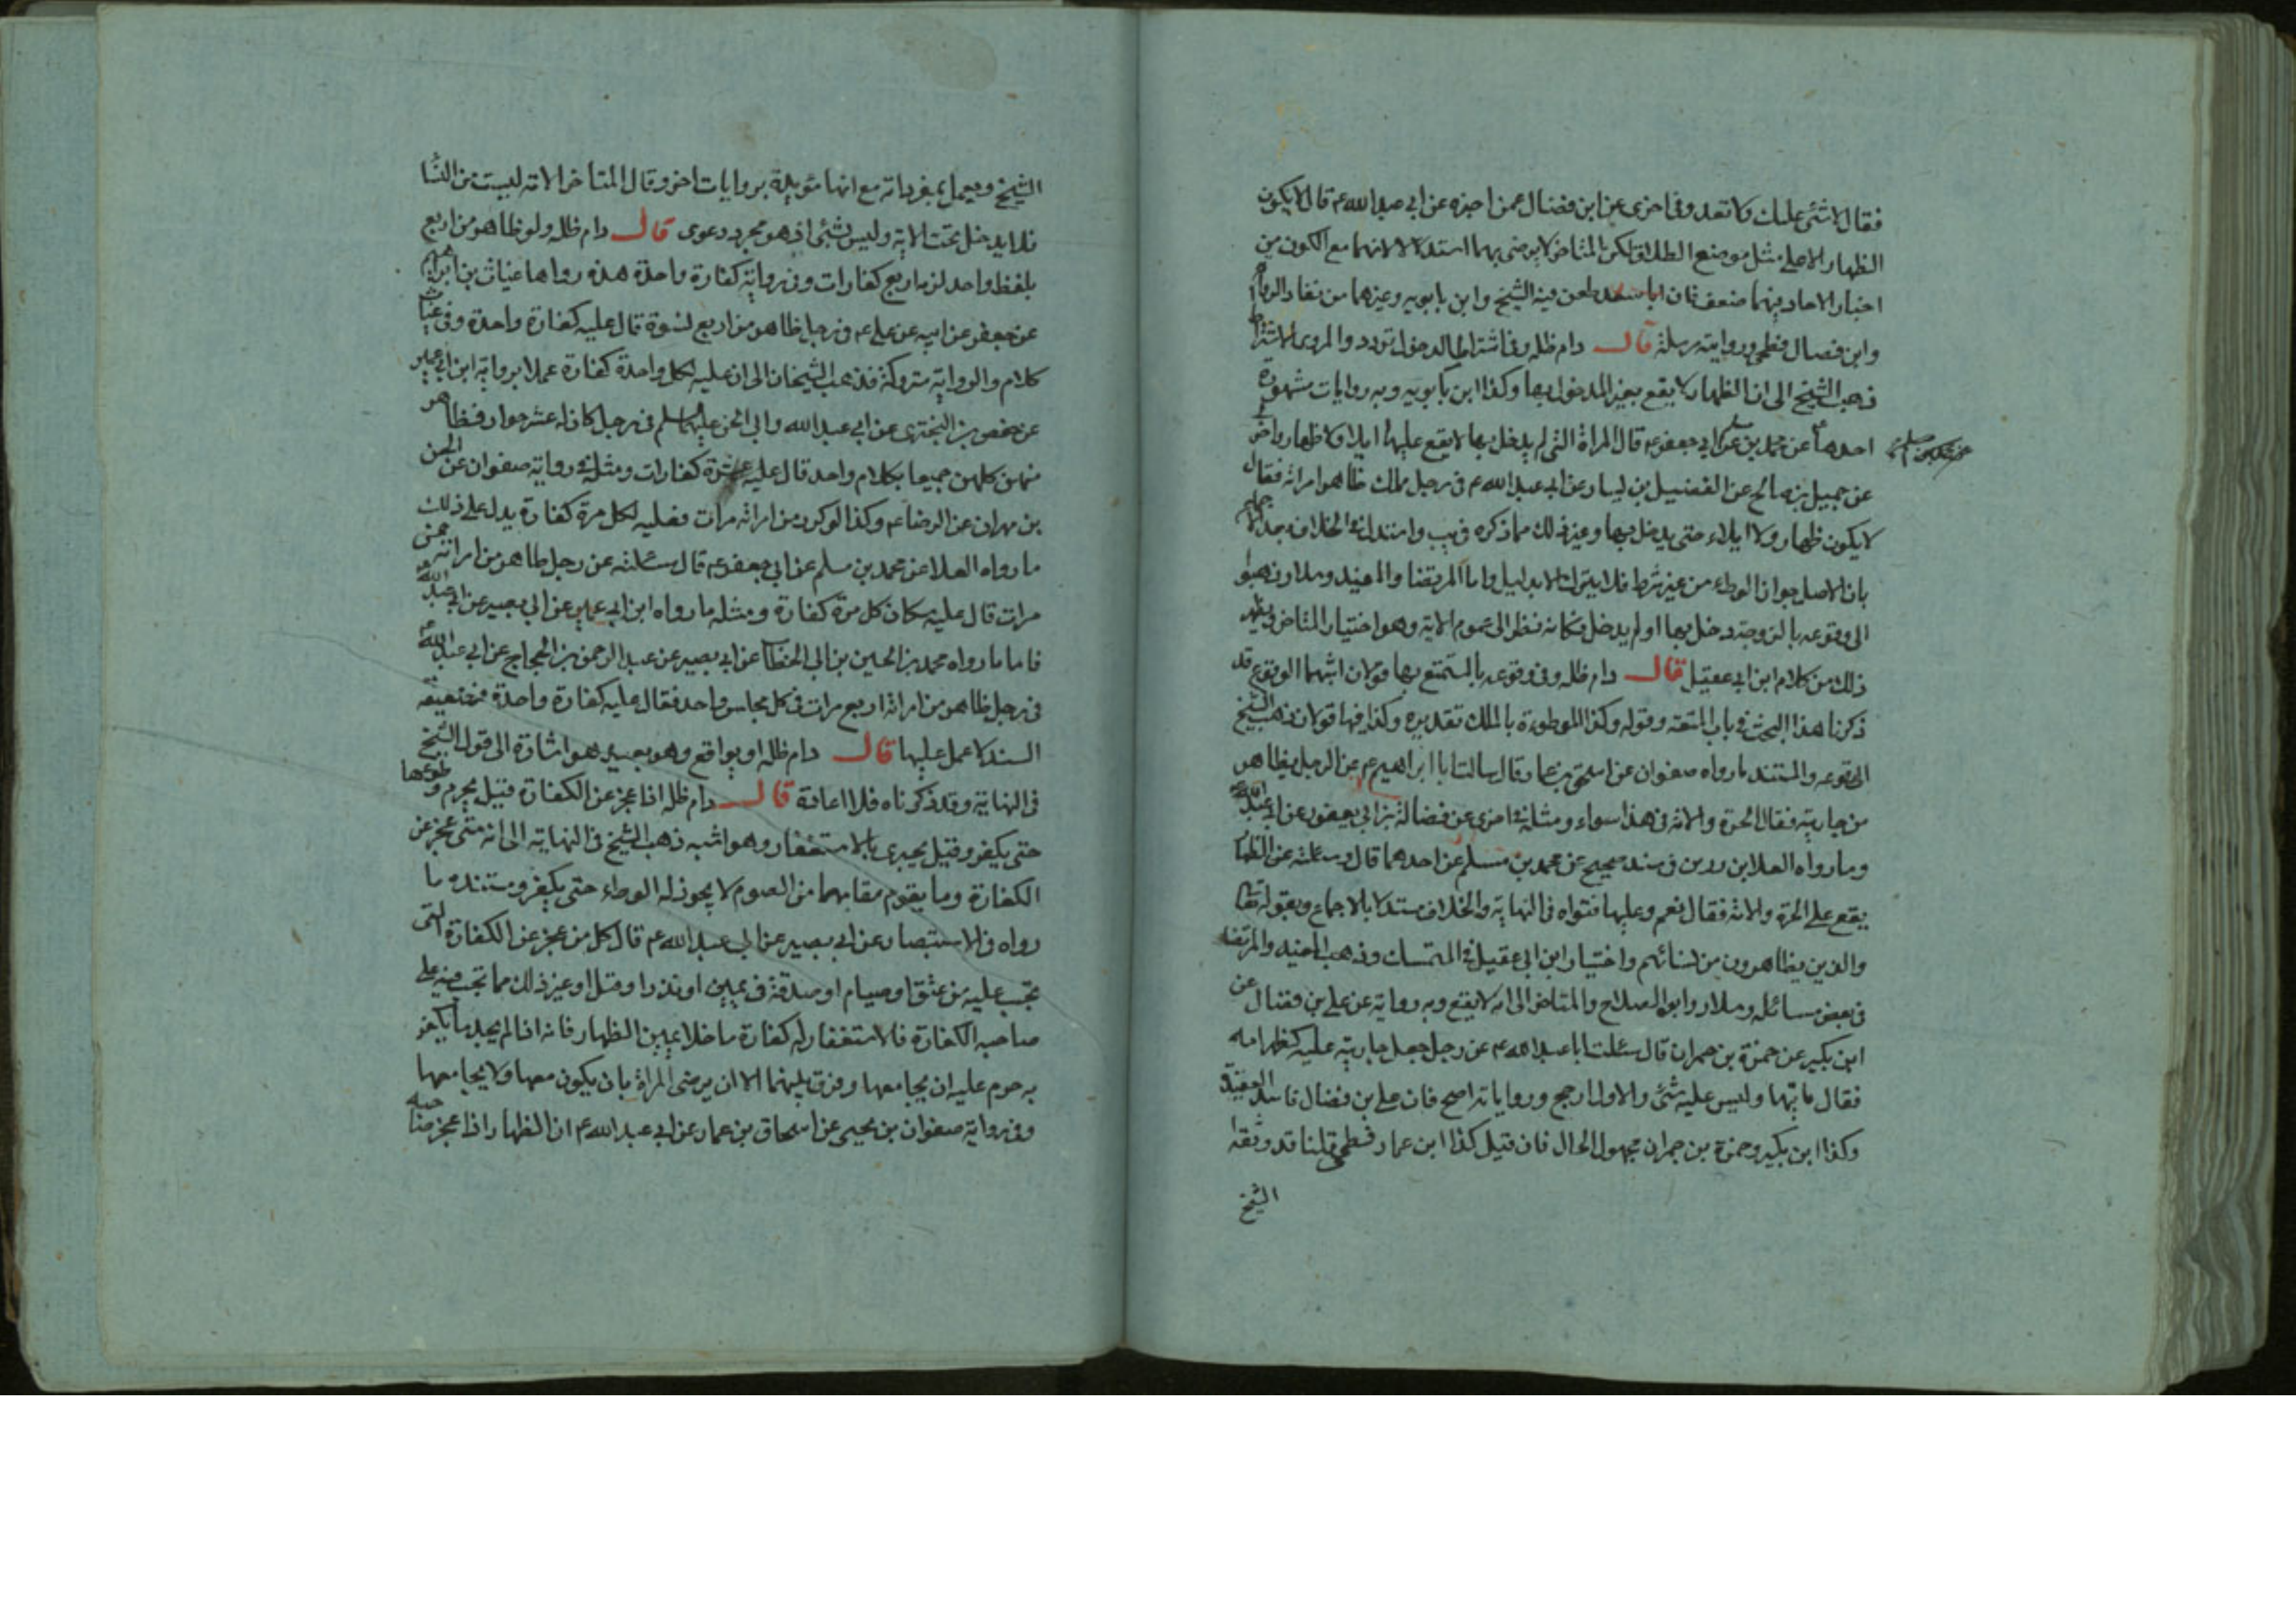 فقال لا شئ عليك ولا تعد وفى اخرى عن ابن فضال عمن اخبره عن ابى عبد الله ع قال لا يكون
الظهار الا على مثل موضع الطلاق لكن المتاخر لا يرضى بهما استدلالا لانهما مع الكون من
اخبار الاحاد فيهما ضعف فان ابا سعيد طعن فيه الشيخ وابن بابويه وغيرهما من نقاد الرجال
وابن فضال فطحى وروايته مرسلة قال دام ظله وفى اشتراط الدخول تردد والمروى الاشتراط
فذهب الشيخ الى ان الظهار لا يقع بغير المدخول بها وكذا ابن بابويه وبه روايات مشهورة
احدها عن محمد بن مسلم عن ابى جعفر ع قال المراة التى لم يدخل بها لا يقع عليها ايلاء ولا ظهار واخرى
عن جميل بن صالح عن الفضيل بن يسار عن ابى عبد الله ع فى رجل مملك ظاهر امراته فقال
لا يكون ظهار ولا ايلاء حتى يدخل بها وغير ذلك مما ذكره فى يب واستدل فى الخلاف بعد
بان الاصل جواز الوطء من غير شرط فلا يترك الا بدليل واما المرتضا والمفيد وسلار ذهبوا
الى وقوعه بالزوجة دخل بها او لم يدخل وكانه نظر الى عموم الاية وهو اختيار المتاخر ويظهر
ذلك من كلام ابن ابى عقيل قال دام ظله وفى وقوعه بالمستمتع بها قولان اشبههما الوقوع قد
ذكرنا هذا البحث فى باب المتعة وقوله وكذا الموطوءة بالملك تقديره وكذا فيها قولان ذهب الشيخ
الى وقوعه والمستند ما رواه صفوان عن اسحق بن عمار قال سالت ابا ابراهيم ع عن الرجل يظاهر
من جاريته فقال الحرة والامة فى هذا سواء ومثله فى اخرى عن فضالة بن ابى يعفور عن ابى عبد الله ع
وما رواه العلا بن رزين فى سند صحيح عن محمد بن مسلم عن احدهما قال وسئلته عن الظهار
يقع على الحرة والامة فقال نعم وعليها فتواه فى النهاية والخلاف مستدلا بالاجماع وبقوله تعا
والذين يظاهرون من نسائهم واختيار ابن ابى عقيل فى المتمسك وذهب المفيد والمرتضا
فى بعض مسائله وسلار وابو الصلاح والمتاخر الى انه لا يقع وبه رواية عن على بن فضال عن
ابن بكير عن حمزة بن حمران قال سئلت ابا عبد الله ع عن رجل جعل جاريته عليه كظهر امه
فقال ياتيها وليس عليه شئ والاول ارجح ورواياته اصح فان على بن فضال فاسد العقيدة
وكذا ابن بكير وحمزة بن حمران مجهول الحال فان قيل كذا ابن عمار فطحى قلنا قد وثقه
الشيخ
الشيخ ويعمل بمفرداته مع انها مؤيدة بروايات اخر وقال المتاخر الامة ليست من النساء
فلا يدخل تحت الاية وليس بشئ اذ هو مجرد دعوى قال دام ظله ولو ظاهر من اربع
بلفظ واحد لزم اربع كفارات وفى رواية كفارة واحدة هذه رواها غياث بن ابراهيم
عن جعفر عن ابيه عن على ع فى رجل ظاهر من اربع نسوة قال عليه كفارة واحدة وفى غياث
كلام والرواية متروكة فذهب الشيخان الى ان عليه لكل واحدة كفارة عملا برواية ابن ابى عمير
عن حفص بن البخترى عن ابى عبد الله وابى الحسن عليهما السلم فى رجل كان له عشر جوار فظاهر
منهن كلهن جميعا بكلام واحد قال عليه عشرة كفارات ومثله فى رواية صفوان عن
بن مهران عن الرضا ع وكذا لو كرر من امراته مرات فعليه لكل مرة كفارة يدل على ذلك
ما رواه العلا عن محمد بن مسلم عن ابى جعفر ع قال سئلته عن رجل ظاهر من امراته خمس
مرات قال عليه مكان كل مرة كفارة ومثله ما رواه ابن ابى عمير عن ابى بصير عن ابى عبد الله ع
فاما ما رواه محمد بن الحسين بن ابى الخطاب عن ابى بصير عن عبد الرحمن بن الحجاج عن ابى عبد الله ع
فى رجل ظاهر من امراته اربع مرات فى كل مجلس واحد فقال عليه كفارة واحدة فضعيفة
السند لا عمل عليها قال دام ظله او يواقع وهو بعيد هو اشارة الى قول الشيخ
فى النهاية وقد ذكرناه فلا اعادة قال دام ظله اذا عجز عن الكفارة قيل يحرم وطؤها
حتى يكفر وقيل يجزى بالاستغفار وهو اشبه ذهب الشيخ فى النهاية الى انه متى عجز عن
الكفارة وما يقوم مقامها من الصوم لا يجوز له الوطء حتى يكفر ومستنده ما
رواه فى الاستبصار عن ابى بصير عن ابى عبد الله ع قال كل من عجز عن الكفارة التى
تجب عليه من عتق او صيام او صدقة فى يمين او نذر او قتل او غير ذلك مما تجب فيه على
صاحبه الكفارة فالاستغفار له كفارة ما خلا يمين الظهار فانه اذا لم يجد ما يكفر
به حرم عليه ان يجامعها وفرق بينهما الا ان يرضى المراة بان يكون معها ولا يجامعها
وفى رواية صفوان بن يحيى عن اسحاق بن عمار عن ابى عبد الله ع ان الظهار اذا عجز صاحبه